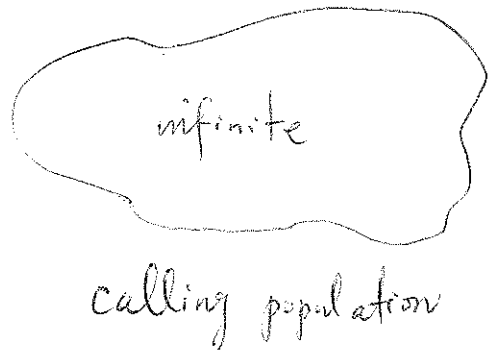 infinite
calling population